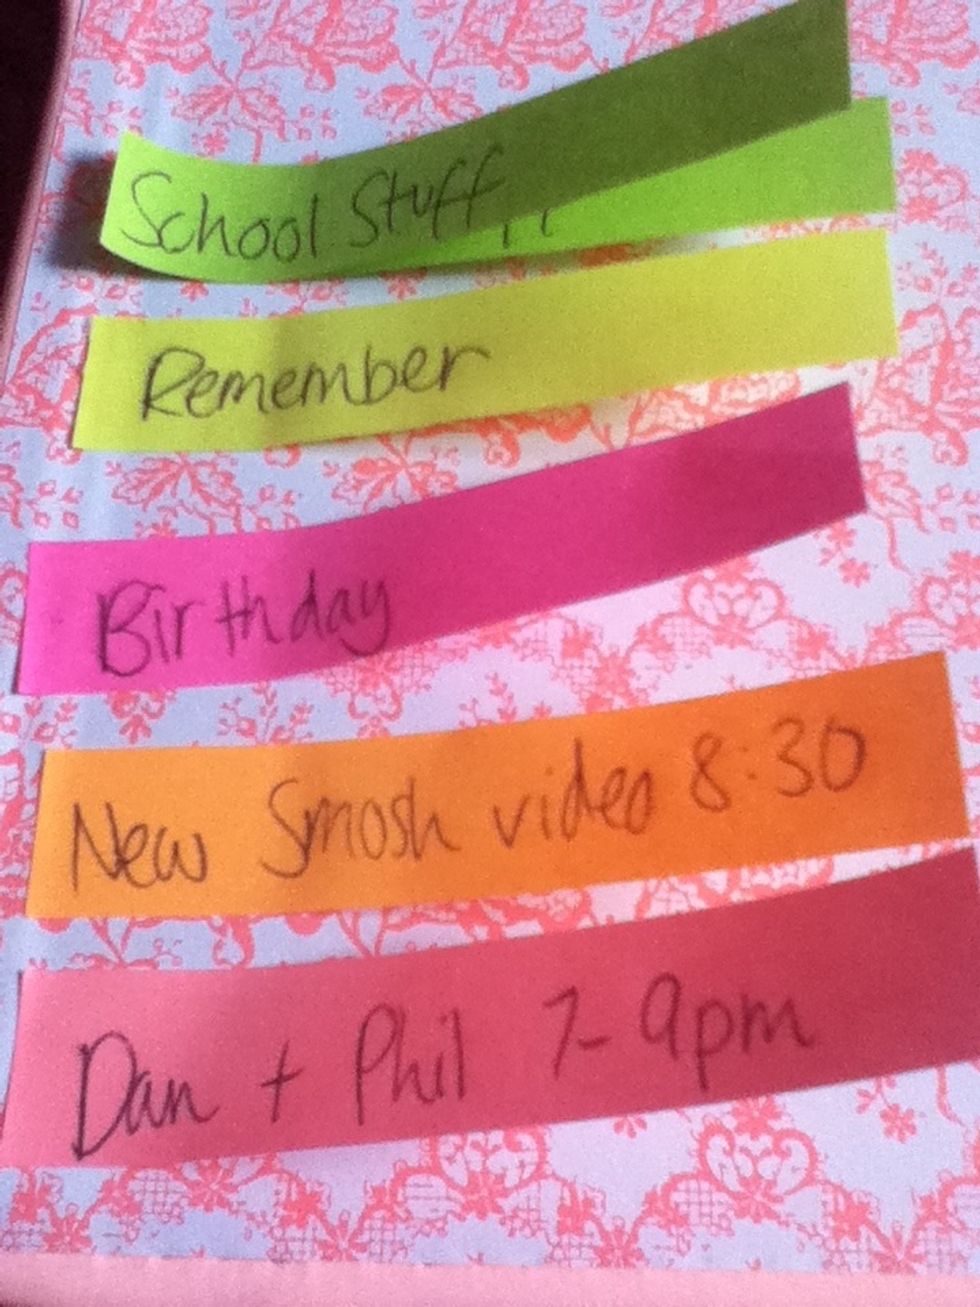 School Stuff
Remember
Birthday
New Smosh video 8:30
Dan + Phil 7-9pm